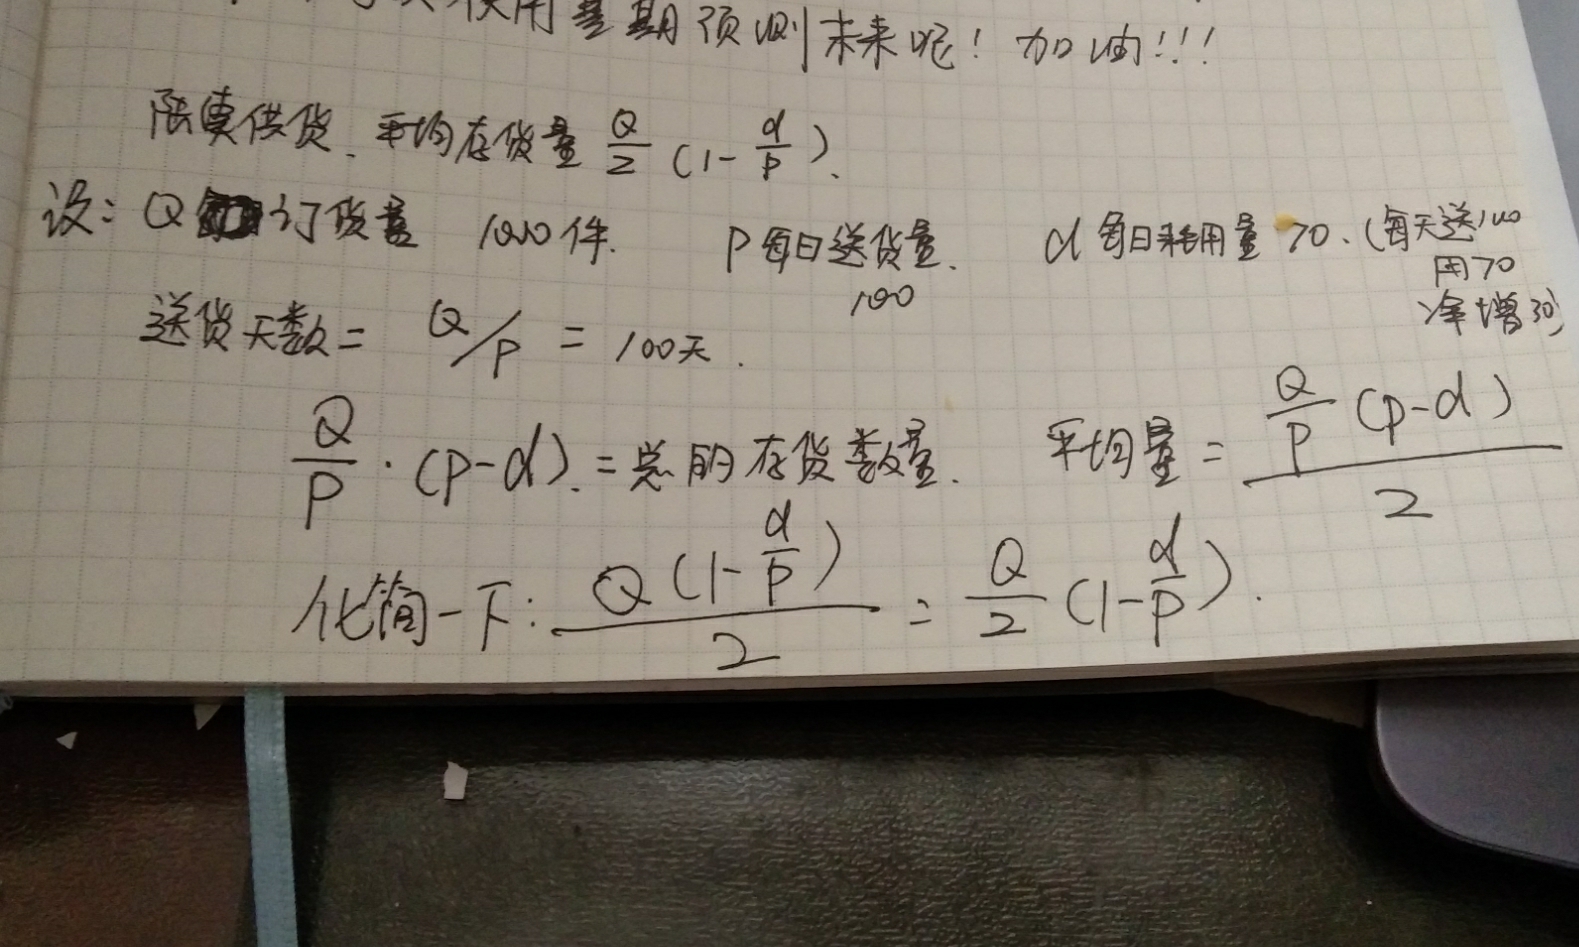 使用基期预测未来呢！加油!!!
陆续供货、平均存货量 Q/2 (1-d/P)、
设：Q 订货量 1000件. P每日送货量、100 d每日耗用量 70、(每天送100
用70
净增30)
送货天数= Q/P = 100天.
Q/P·(P-d).=总的存货数量. 平均量= Q/P (P-d) / 2
化简一下: Q(1-d/P) / 2 = Q/2 (1-d/P).